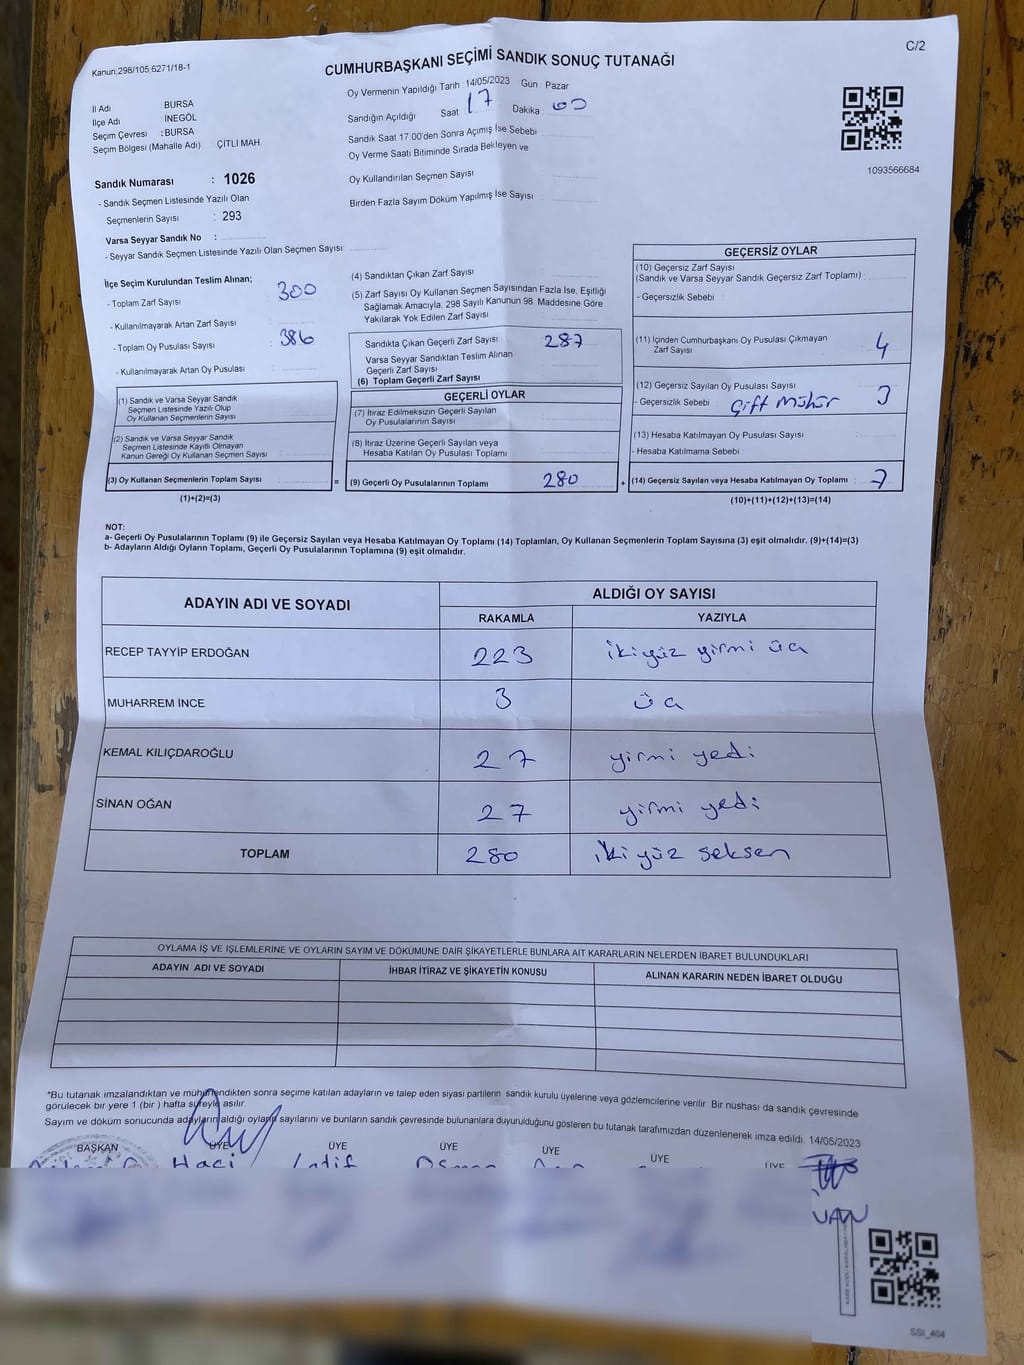 Kanun:298/105;6271/18-1
CUMHURBAŞKANI SEÇİMİ SANDIK SONUÇ TUTANAĞI
C/2
İl Adı BURSA
İlçe Adı : İNEGÖL
Seçim Çevresi : BURSA
Seçim Bölgesi (Mahalle Adı) ÇİTLİ MAH.
Oy Vermenin Yapıldığı Tarih 14/05/2023 Gün Pazar
Sandığın Açıldığı Saat 17 Dakika : 00
Sandık Saat 17.00'den Sonra Açımış İse Sebebi
Oy Verme Saati Bitiminde Sırada Bekleyen ve
Oy Kullandırılan Seçmen Sayısı
Birden Fazla Sayım Döküm Yapılmış İse Sayısı
1093566684
Sandık Numarası : 1026
- Sandık Seçmen Listesinde Yazılı Olan
Seçmenlerin Sayısı : 293
Varsa Seyyar Sandık No :
- Seyyar Sandık Seçmen Listesinde Yazılı Olan Seçmen Sayısı:
İlçe Seçim Kurulundan Teslim Alınan;
- Toplam Zarf Sayısı : 300
- Kullanılmayarak Artan Zarf Sayısı :
- Toplam Oy Pusulası Sayısı : 386
- Kullanılmayarak Artan Oy Pusulası
(1) Sandık ve Varsa Seyyar Sandık
Seçmen Listesinde Yazılı Olup
Oy Kullanan Seçmenlerin Sayısı
(2) Sandık ve Varsa Seyyar Sandık
Seçmen Listesinde Kayıtlı Olmayan
Kanun Gereği Oy Kullanan Seçmen Sayısı :
(3) Oy Kullanan Seçmenlerin Toplam Sayısı
(1)+(2)=(3)
=
(4) Sandıktan Çıkan Zarf Sayısı
(5) Zarf Sayısı Oy Kullanan Seçmen Sayısından Fazla İse, Eşitliği
Sağlamak Amacıyla, 298 Sayılı Kanunun 98. Maddesine Göre
Yakılarak Yok Edilen Zarf Sayısı
Sandıkta Çıkan Geçerli Zarf Sayısı 287
Varsa Seyyar Sandıktan Teslim Alınan
Geçerli Zarf Sayısı
(6) Toplam Geçerli Zarf Sayısı
GEÇERLİ OYLAR
(7) İtiraz Edilmeksizin Geçerli Sayılan
Oy Pusulalarının Sayısı
(8) İtiraz Üzerine Geçerli Sayılan veya
Hesaba Katılan Oy Pusulası Toplamı
(9) Geçerli Oy Pusulalarının Toplamı 280
+
GEÇERSİZ OYLAR
(10) Geçersiz Zarf Sayısı
(Sandık ve Varsa Seyyar Sandık Geçersiz Zarf Toplamı) :
- Geçersizlik Sebebi :
(11) İçinden Cumhurbaşkanı Oy Pusulası Çıkmayan
Zarf Sayısı 4
(12) Geçersiz Sayılan Oy Pusulası Sayısı
- Geçersizlik Sebebi : Çift Mühür 3
(13) Hesaba Katılmayan Oy Pusulası Sayısı
- Hesaba Katılmama Sebebi :
(14) Geçersiz Sayılan veya Hesaba Katılmayan Oy Toplamı : 7
(10)+(11)+(12)+(13)=(14)
NOT:
a- Geçerli Oy Pusulalarının Toplamı (9) ile Geçersiz Sayılan veya Hesaba Katılmayan Oy Toplamı (14) Toplamları, Oy Kullanan Seçmenlerin Toplam Sayısına (3) eşit olmalıdır. (9)+(14)=(3)
b- Adayların Aldığı Oyların Toplamı, Geçerli Oy Pusulalarının Toplamına (9) eşit olmalıdır.
ADAYIN ADI VE SOYADI
ALDIĞI OY SAYISI
RAKAMLA YAZIYLA
RECEP TAYYİP ERDOĞAN 223 ikiyüz yirmi üç
MUHARREM İNCE 3 üç
KEMAL KILIÇDAROĞLU 27 yirmi yedi
SİNAN OĞAN 27 yirmi yedi
TOPLAM 280 iki yüz seksen
OYLAMA İŞ VE İŞLEMLERİNE VE OYLARIN SAYIM VE DÖKÜMÜNE DAİR ŞİKAYETLERLE BUNLARA AİT KARARLARIN NELERDEN İBARET BULUNDUKLARI
ADAYIN ADI VE SOYADI İHBAR İTİRAZ VE ŞİKAYETİN KONUSU ALINAN KARARIN NEDEN İBARET OLDUĞU
*Bu tutanak imzalandıktan ve mühürlendikten sonra seçime katılan adayların ve talep eden siyasi partilerin sandık kurulu üyelerine veya gözlemcilerine verilir. Bir nüshası da sandık çevresinde
görülecek bir yere 1 (bir ) hafta süreyle asılır.
Sayım ve döküm sonucunda adayların aldığı oyların sayılarını ve bunların sandık çevresinde bulunanlara duyurulduğunu gösteren bu tutanak tarafımızdan düzenlenerek imza edildi. 14/05/2023
BAŞKAN ÜYE ÜYE ÜYE ÜYE ÜYE ÜYE
Haci Latif Osman
SSI_404